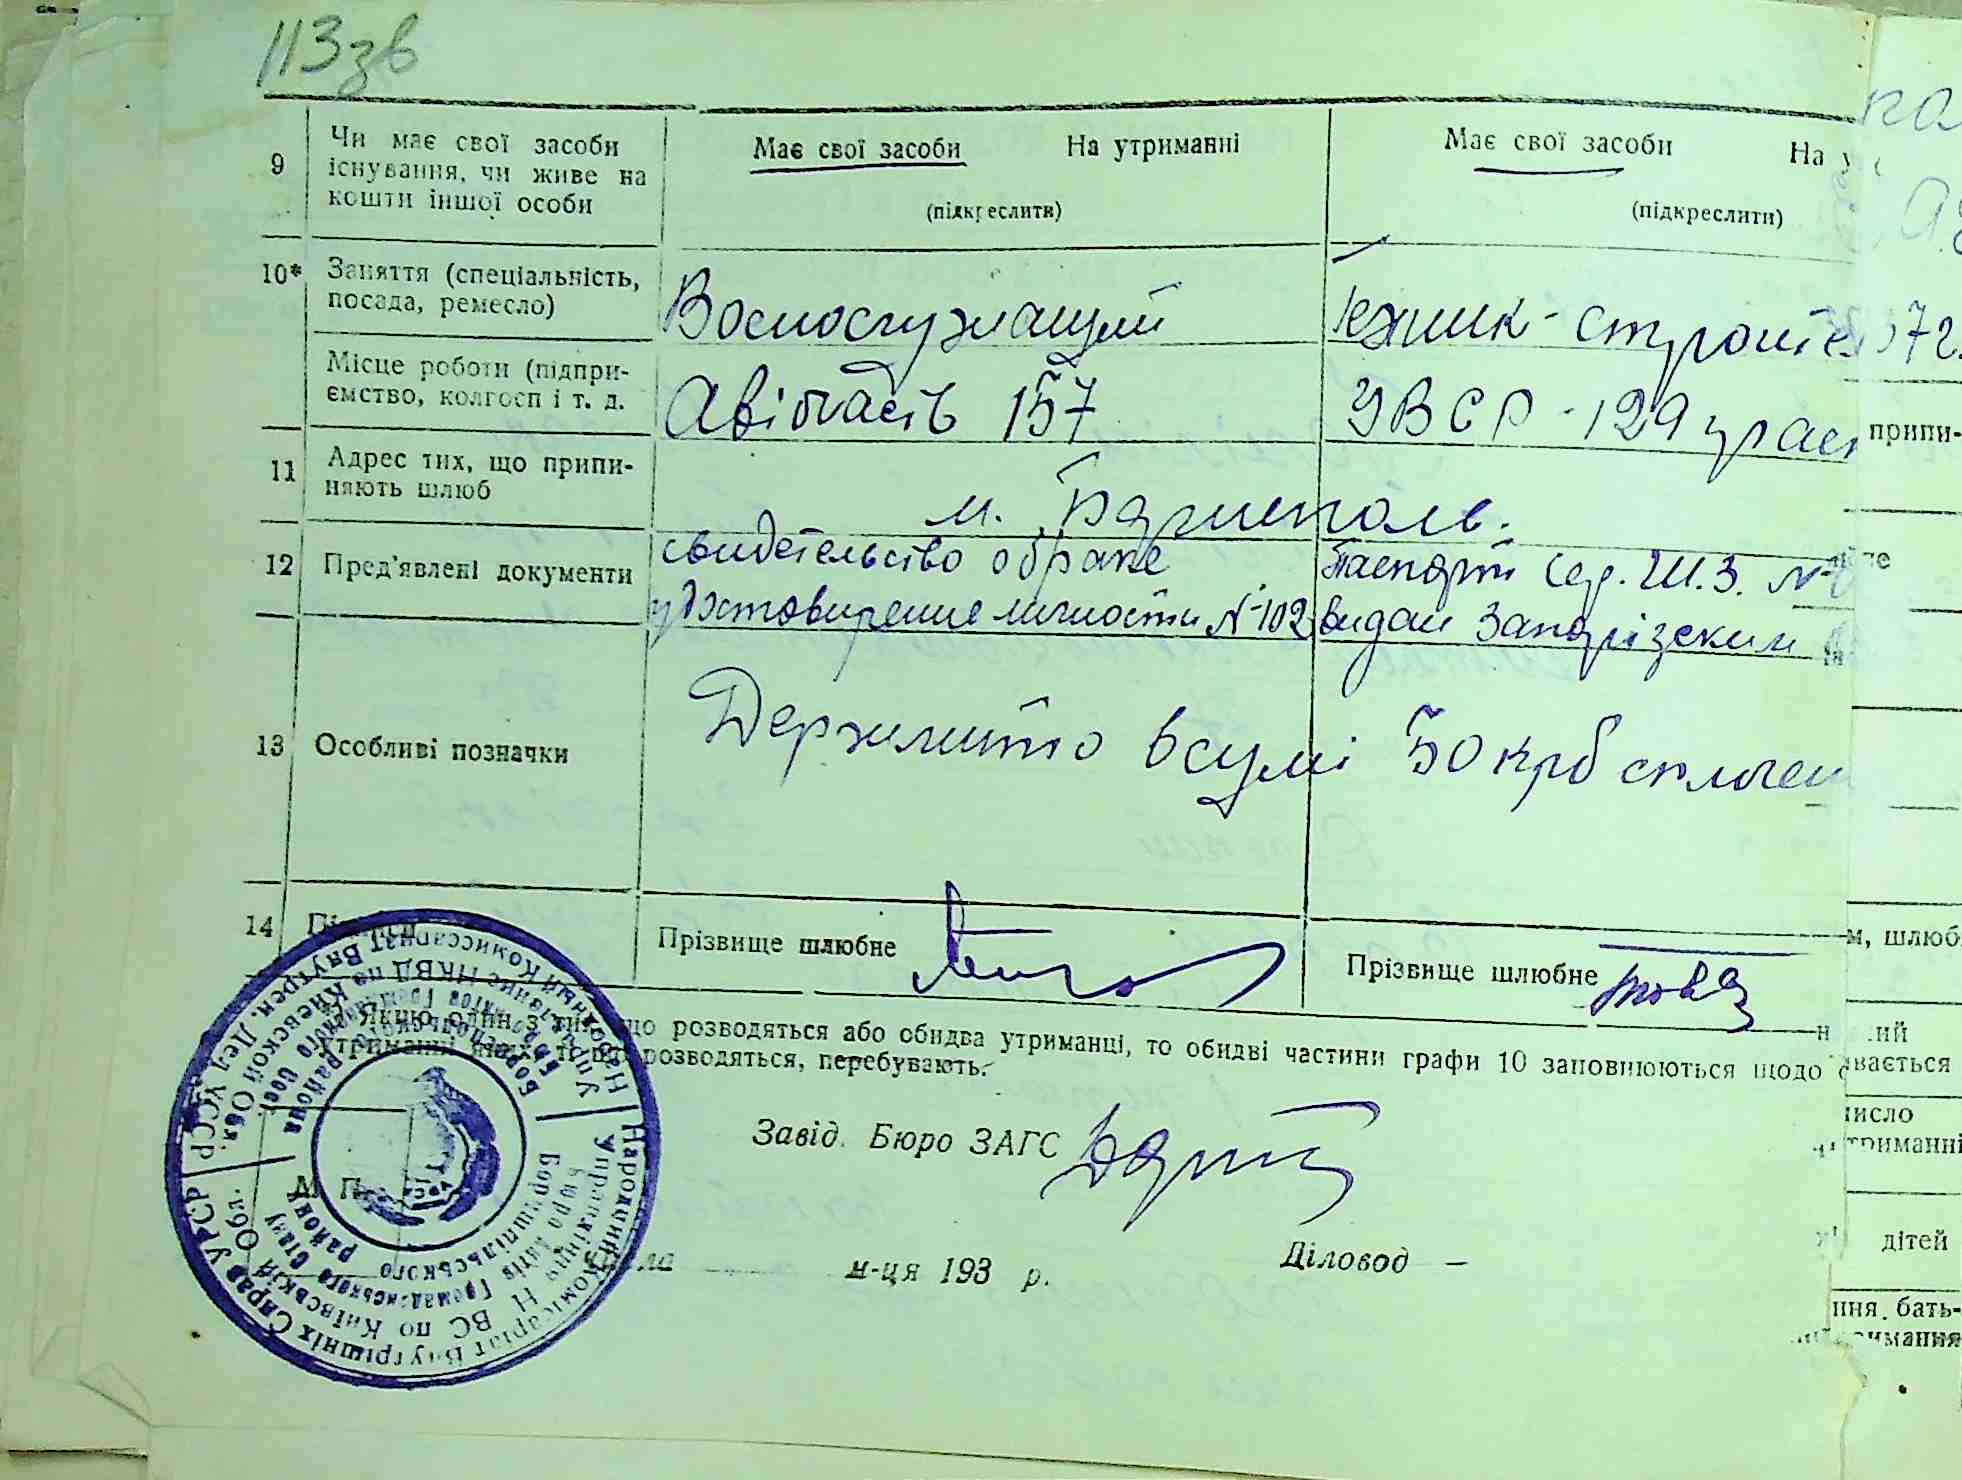 113зв
9 Чи має свої засоби існування, чи живе на кошти іншої особи
Має свої засоби На утриманні
(підкреслити)
Має свої засоби На
(підкреслити)
10* Заняття (спеціальність, посада, ремесло)
Военослужащий
Технік-строите
Місце роботи (підприємство, колгосп і т. д.
Авічасть 157
УВСР-129
11 Адрес тих, що припиняють шлюб
м. Борисполь.
12 Пред'явлені документи
свидетельство о браке
удостоверение личности №102
Паспорт сер. Ш.З. №
видан Запорізским
13 Особливі позначки
Держмито в сумі 50 крб сплочен
14
Прізвище шлюбне
Прізвище шлюбне
Якщо один з тих, що розводяться або обидва утриманці, то обидві частини графи 10 заповнюються щодо
утриманні яких ті, що розводяться, перебувають.
Завід. Бюро ЗАГС
М. П.
м-ця 193 р.
Діловод –
Народний Комісаріат Внутрішніх Справ УРСР
Управління НКВС по Київській Обл.
Бюро Актів Громадянського Стану
Бориспільського району
Народный Комиссариат Внутрен. Дел УССР
Управление НКВД по Киевской Обл.
припи-
м, шлюб
вається
число
утриманні
дітей
ння. бать-